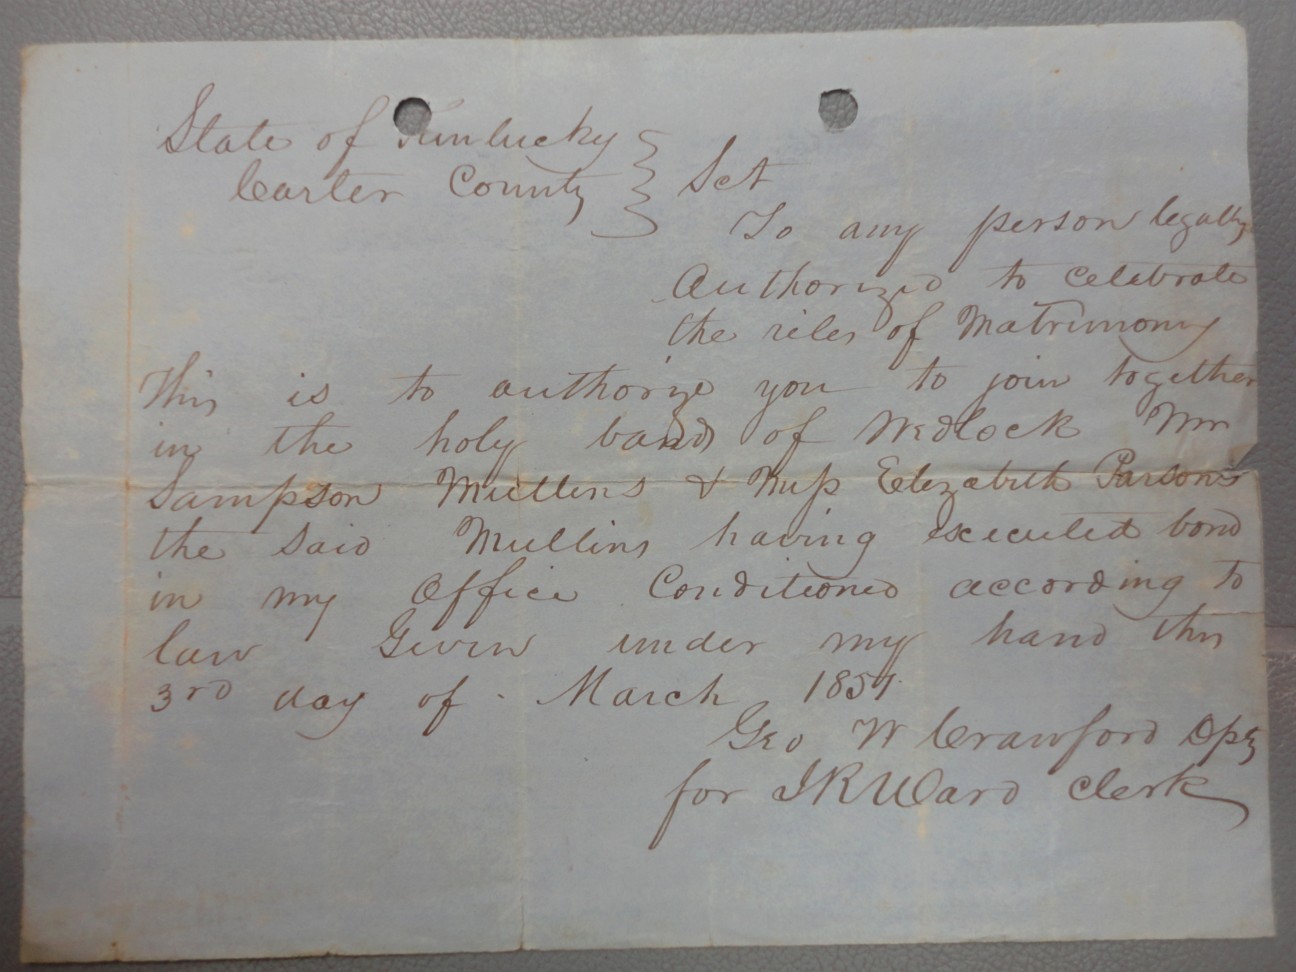 State of Kentucky
Carter County } Sct
To any person legally
Authorized to celebrate
the rites of Matrimony
This is to authorize you to join together
in the holy bands of Wedlock Wm
Sampson Mullins & Miss Elizabeth Parsons
the said Mullins having executed bond
in my Office Conditioned according to
law Given under my hand this
3rd day of March
Geo W Crawford Dpty
for J R Ward Clerk